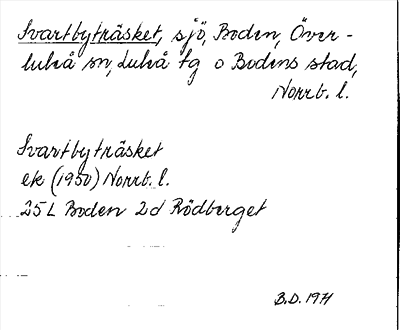 Svartbyträsket, sjö, Boden, Över-
luleå sn, Luleå tg o Bodens stad,
Norrb. l.
Svartbyträsket
ek (1950) Norrb. l.
25L Boden 2d Rödberget
B.D. 1971